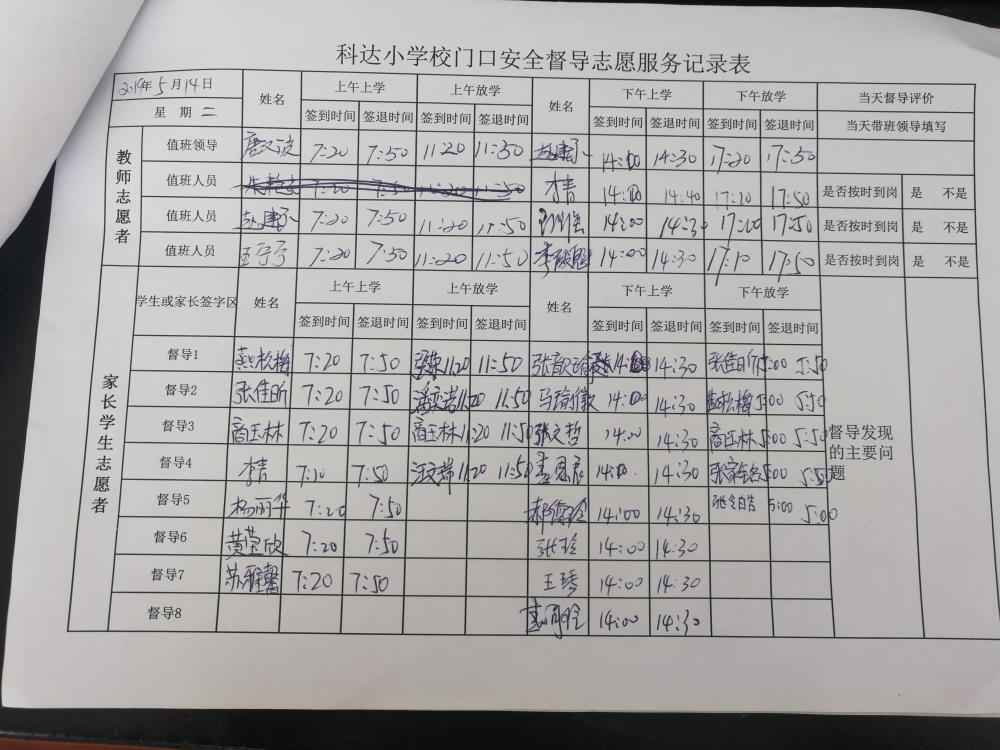 科达小学校门口安全督导志愿服务记录表
2019年5月14日 姓名 上午上学 上午放学 姓名 下午上学 下午放学 当天督导评价
星期二 签到时间 签退时间 签到时间 签退时间 签到时间 签退时间 签到时间 签退时间 当天带班领导填写
教师志愿者
值班领导 7:20 7:50 11:20 11:50 14:00 14:30 17:20 17:50
值班人员 7:20 7:50 11:20 11:50 14:00 14:40 17:20 17:50 是否按时到岗 是 不是
值班人员 7:20 7:50 11:20 11:50 14:00 14:30 17:00 17:50 是否按时到岗 是 不是
值班人员 7:20 7:50 11:20 11:50 14:00 14:30 17:10 17:50 是否按时到岗 是 不是
家长学生志愿者
学生或家长签字区 姓名 上午上学 上午放学 姓名 下午上学 下午放学
签到时间 签退时间 签到时间 签退时间 签到时间 签退时间 签到时间 签退时间
督导1 7:20 7:50 11:20 11:50 14:00 14:30 张佳昕 5:00 5:50
督导2 张佳昕 7:20 7:50 11:20 11:50 14:00 14:30 5:00 5:50
督导3 商玉林 7:20 7:50 商玉林 11:20 11:50 张文哲 14:00 14:30 商玉林 5:00 5:50
督导4 7:10 7:50 11:20 11:50 14:00 14:30 5:00 5:50
督导5 杨丽华 7:20 7:50 14:00 14:30 5:00 5:00
督导6 黄莹欣 7:20 7:50 张玲 14:00 14:30
督导7 苏雅馨 7:20 7:50 王琇 14:00 14:30
督导8 14:00 14:30
督导发现的主要问题